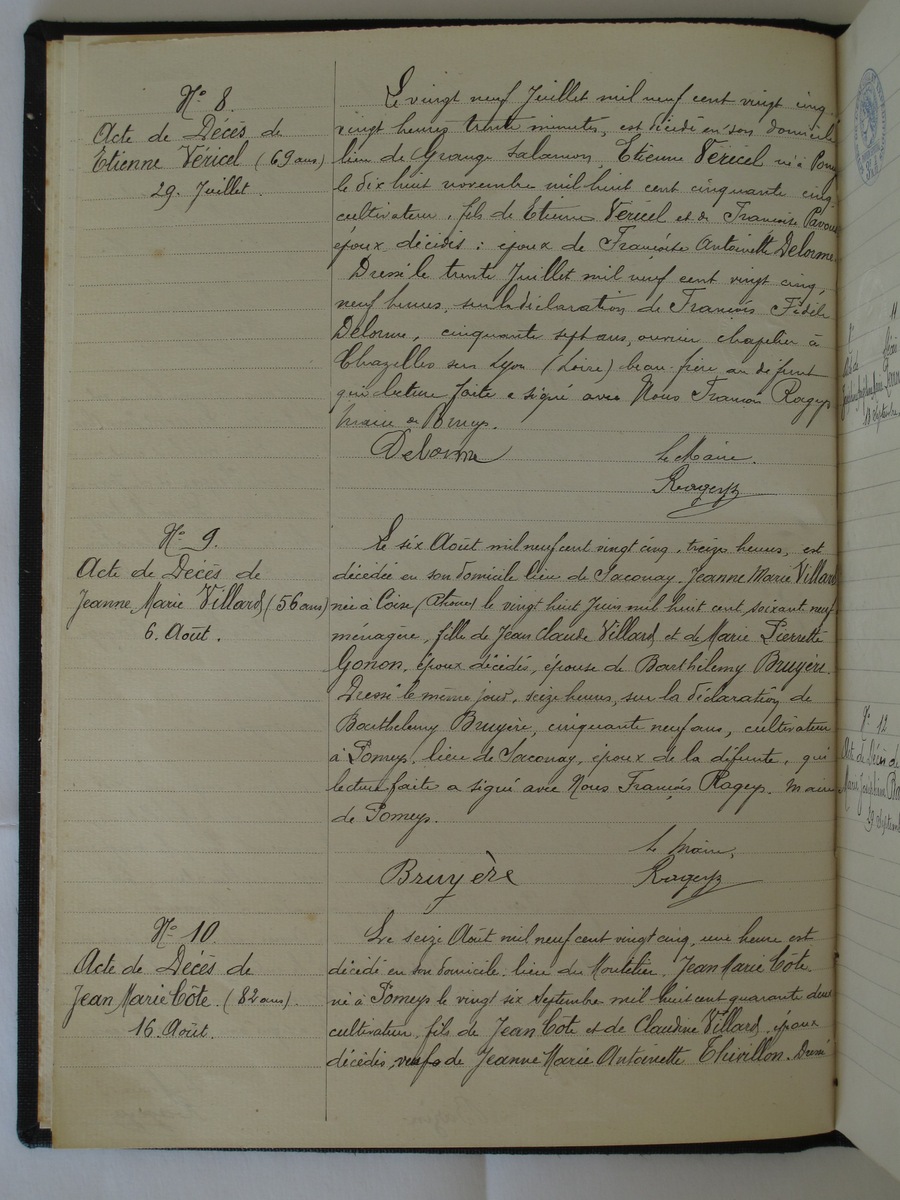 N° 8.
Acte de Décès de
Etienne Véricel (69 ans)
29. Juillet.
Le vingt neuf Juillet mil neuf cent vingt cinq
vingt heures trente minutes, est décédé en son domicile
lieu de Grange Salamon, Etienne Véricel né à Pomeys
le dix huit novembre mil huit cent cinquante cinq
cultivateur, fils de Etienne Véricel et de Françoise
époux décédés : époux de Françoise Antoinette Delorme.
Dressé le trente Juillet mil neuf cent vingt cinq,
neuf heures, sur la déclaration de François Fidèle
Delorme, cinquante sept ans, ouvrier chapelier à
Chazelles sur Lyon (Loire) beau-frère au défunt
qui lecture faite a signé avec Nous François Rageys
Maire de Pomeys.
Delorme
Le Maire.
Rageys
N° 9.
Acte de Décès de
Jeanne Marie Villard (56 ans)
6. Août.
Le six Août mil neuf cent vingt cinq, treize heures, est
décédée en son domicile lieu de Saconay, Jeanne Marie Villard
née à Coise (Rhône) le vingt huit Juin mil huit cent soixant neuf
ménagère, fille de Jean Claude Villard et de Marie Pierrette
Gonon, époux décédés, épouse de Barthélemy Bruyère.
Dressé le même jour, seize heures, sur la déclaration de
Barthélemy Bruyère, cinquante neuf ans, cultivateur
à Pomeys, lieu de Saconay, époux de la défunte, qui
lecture faite a signé avec Nous François Rageys. Maire
de Pomeys.
Bruyère
Le Maire,
Rageys
N° 10.
Acte de Décès de
Jean Marie Côte. (82 ans).
16. Août.
Le seize Août mil neuf cent vingt cinq, une heure est
décédé en son domicile, lieu du Moutelier, Jean Marie Côte.
né à Pomeys le vingt six Septembre mil huit cent quarante deux
cultivateur, fils de Jean Côte et de Claudine Villard, époux
décédés, veuf de Jeanne Marie Antoinette Thivillon. Dressé
11
N° 12
Acte de Décès de
Marie Joséphine